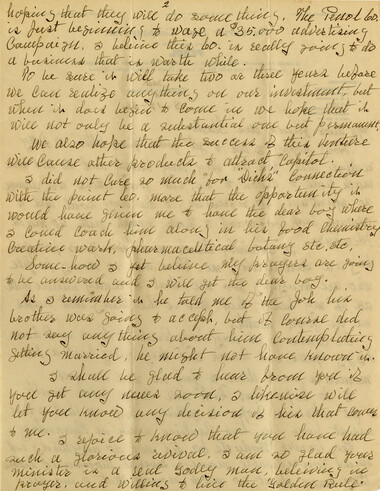 2
hoping that they will do something. The Penol Co.
is just beginning to wage a $35.000 advertising
Campaign. I believe this Co. is really going to do
a business that is worth while.
To be sure it will take two or three years before
we can realize anything on our investment, but
when it does begin to come in we hope that it
will not only be a substantial one but permanent
We also hope that the success of this
will cause other products to attract Capitol.
I did not care so much "for "Dick's" Connection
with the Co. more that the opportunity it
would have given me to have the dear boy where
I could coach him along in his food Chemistry
Creative work, pharmaceutical botany etc, etc.
Some-how I yet believe my prayers are going
to be answered and I will get the dear boy.
As I remember it he told me of the job his
brother was going to accept, but of course did
not say anything about him contemplating
getting married, he might not have known it.
I shall be glad to hear from you if
you get any news soon, I likewise will
let you know any decision of his that comes
to me.
I rejoice to know that you have had
such a glorious revival. I am so glad your
minister is a real Godly man, believing in
prayer, and willing to live the Golden Rule.